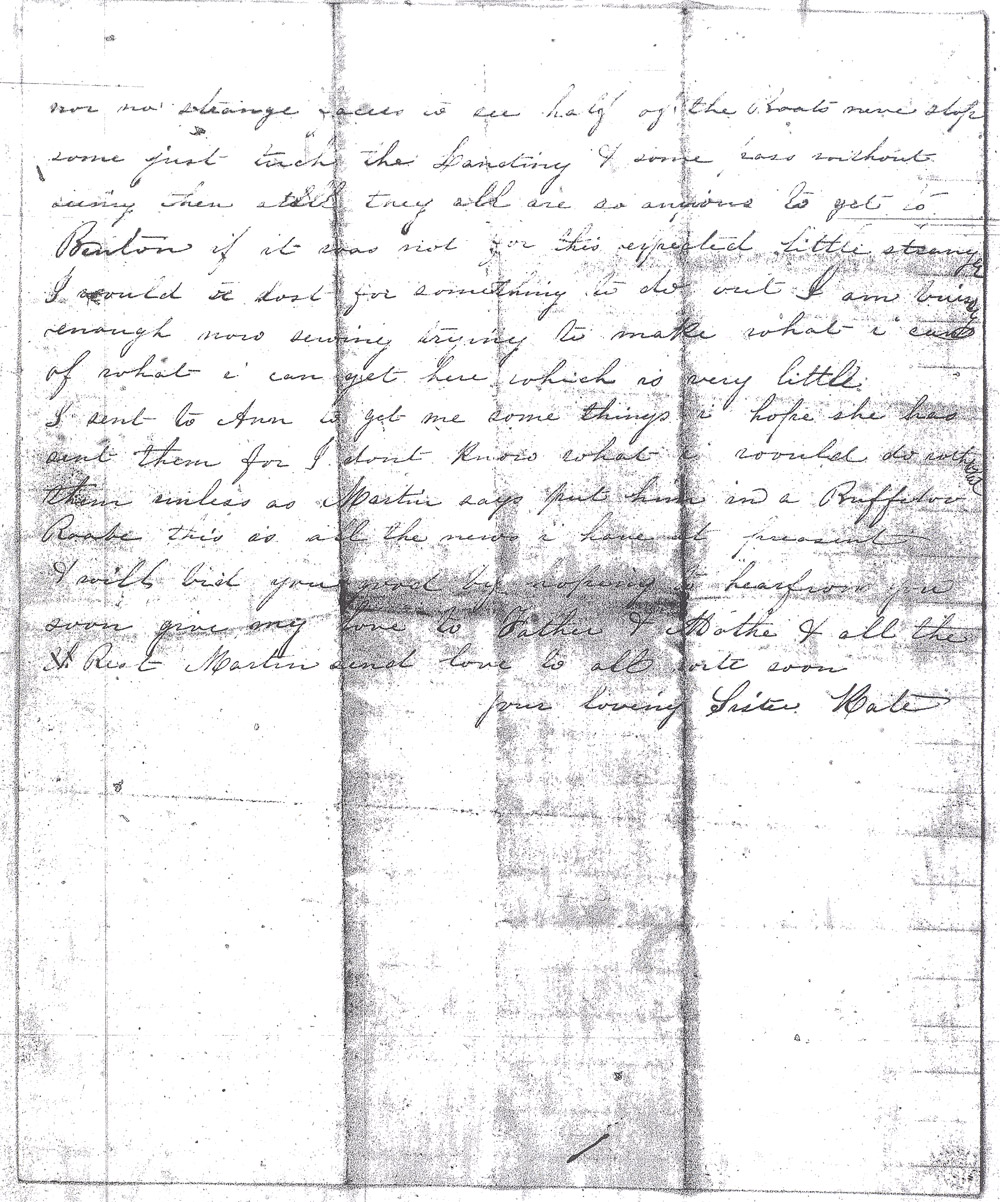 nor no strange faces to see half of the Boats neve stop
some just tuch the Landing & some pass without
they all are so anxious to get to
Benton if it was not for this expected little stranger
I would be lost for something to do but I am buisy
enough now sewing trying to make what i can
of what i can get here which is very little
I sent to Ann to get me some things i hope she has
sent them for I dont know what i would do without
them unless as Martin says put him in a Buffeloo
Roabe this is all the news i have at preasent
I will bid you good by hopeing to hear from you
soon give my love to Father & Mothe & all the
Rest Martin send love to all write soon
your loving Sister Kate